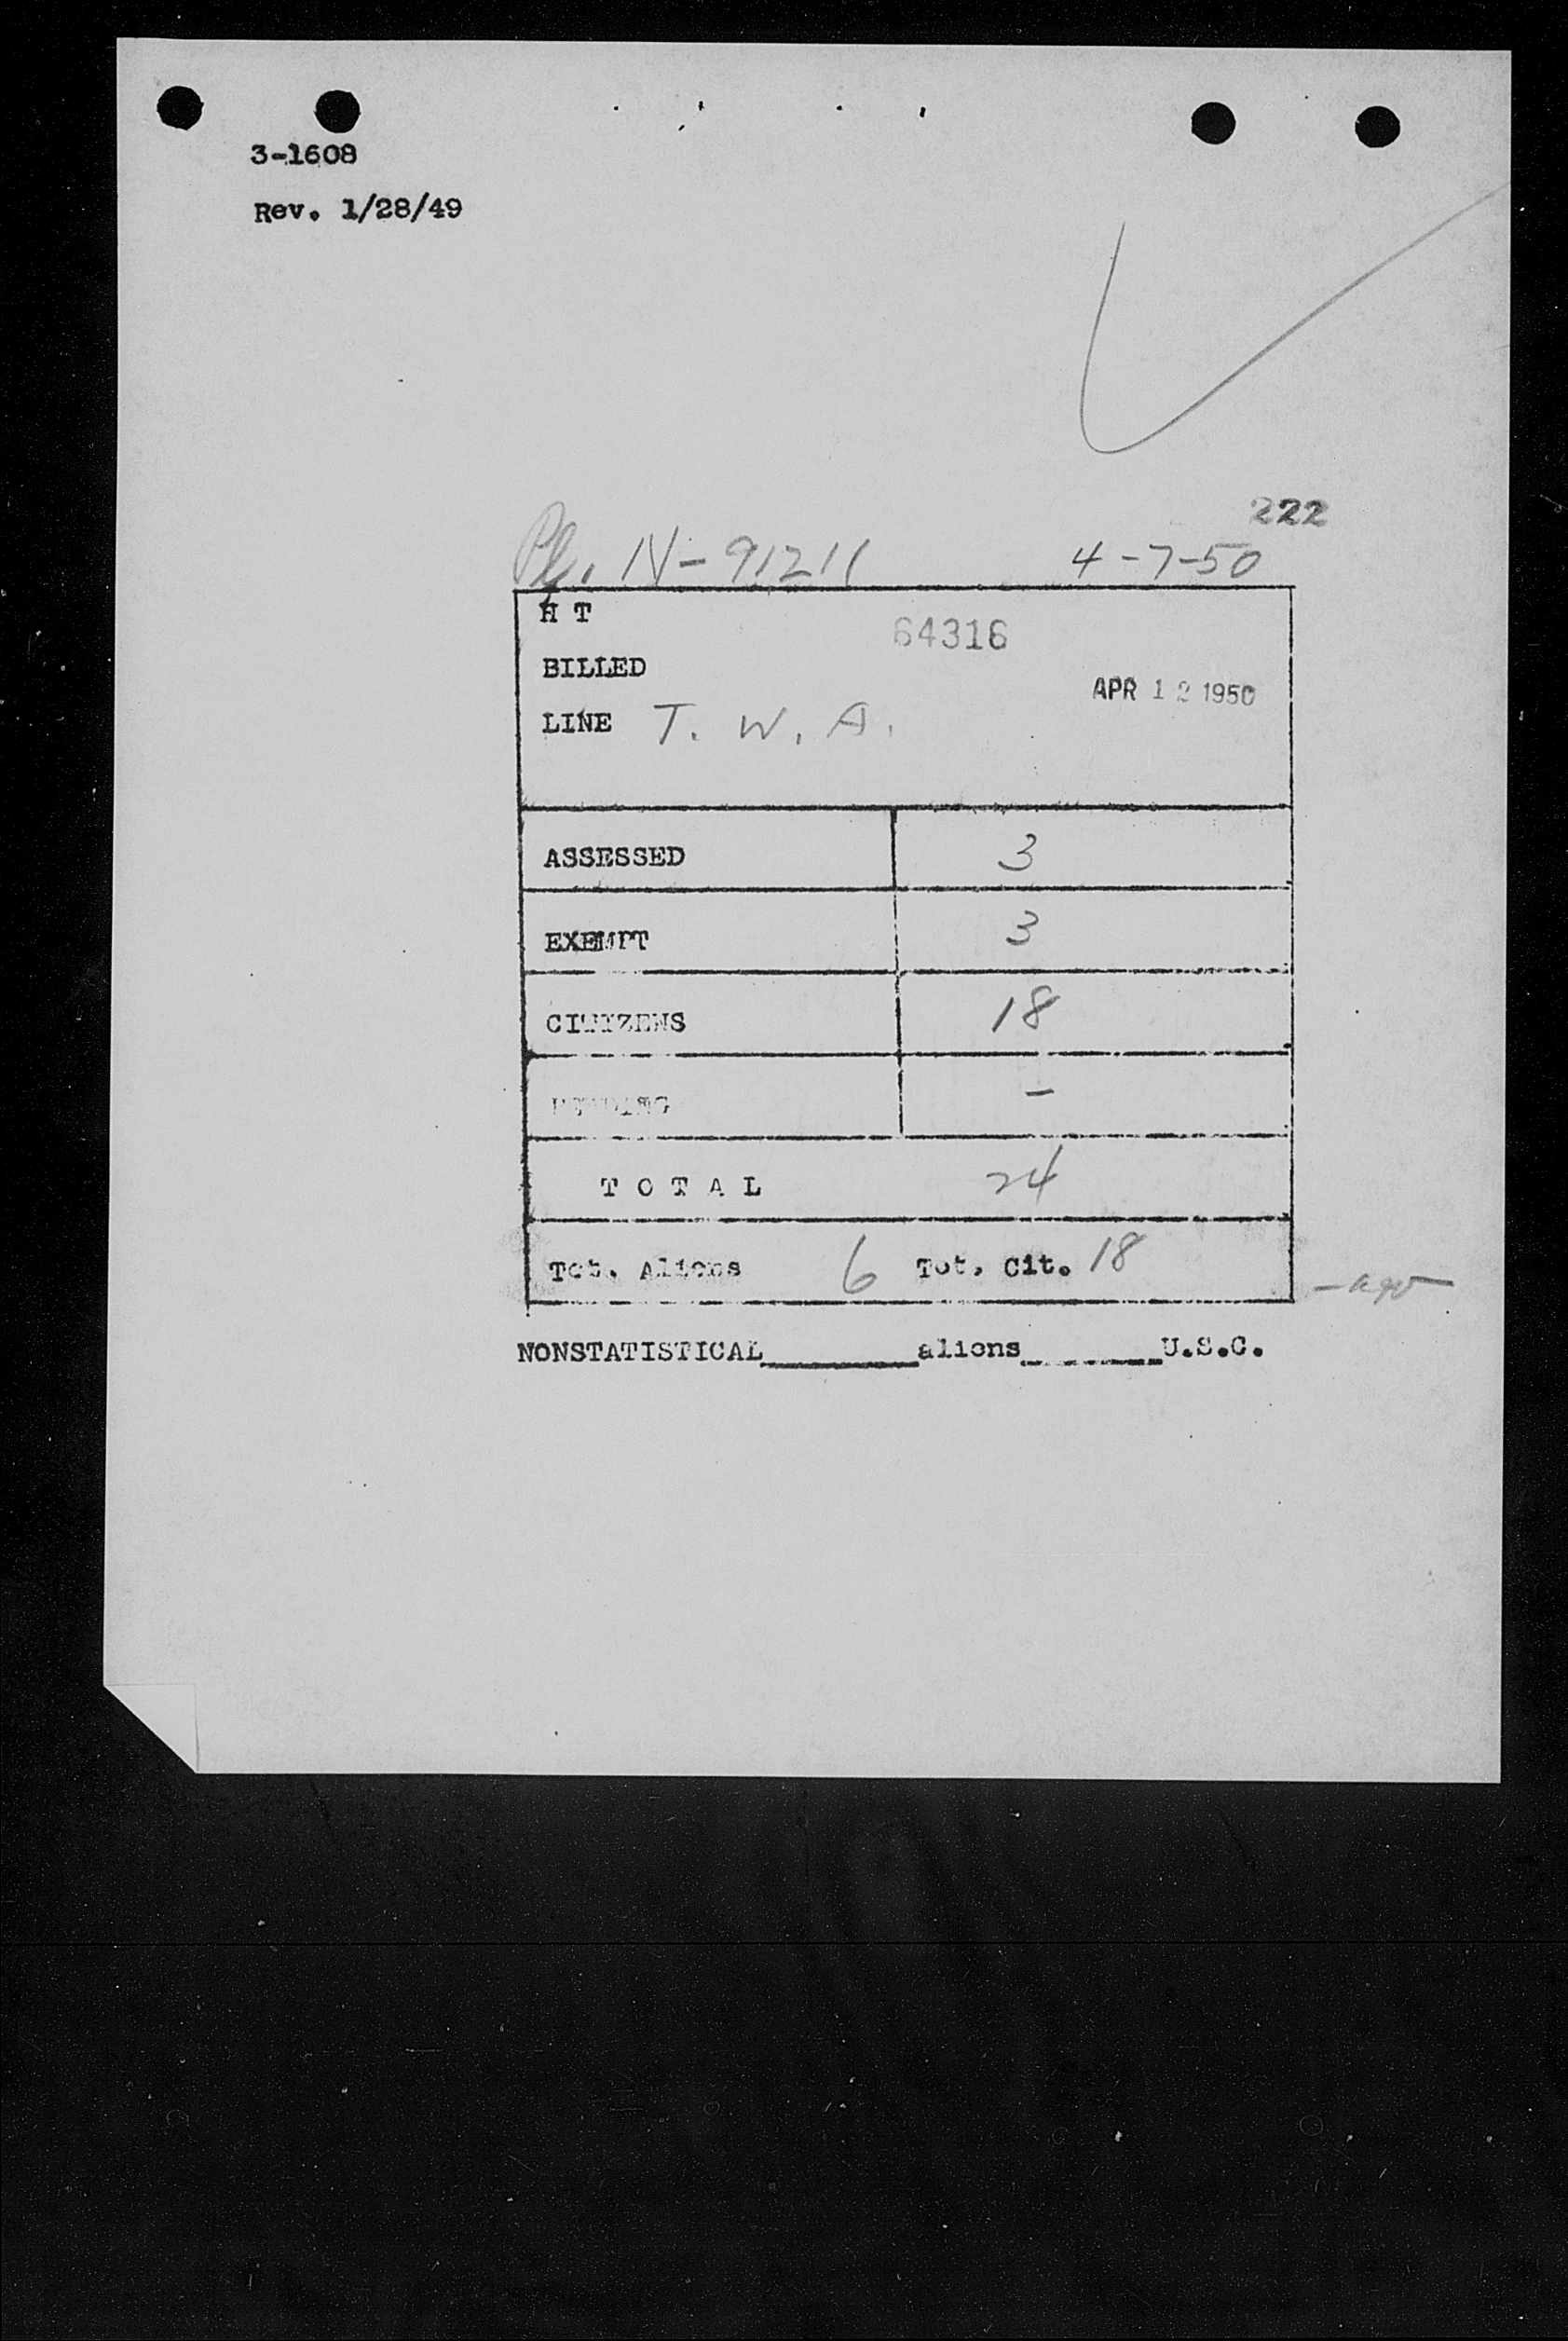 3-1608
Rev. 1/28/49
222
Pl. N-91211 4-7-50
H T
64316
BILLED
APR 12 1950
LINE T. W. A.
ASSESSED 3
EXEMPT 3
CITIZENS 18
PENDING -
T O T A L 24
Tot. Aliens 6 Tot. Cit. 18
NONSTATISTICAL________aliens________U.S.C.